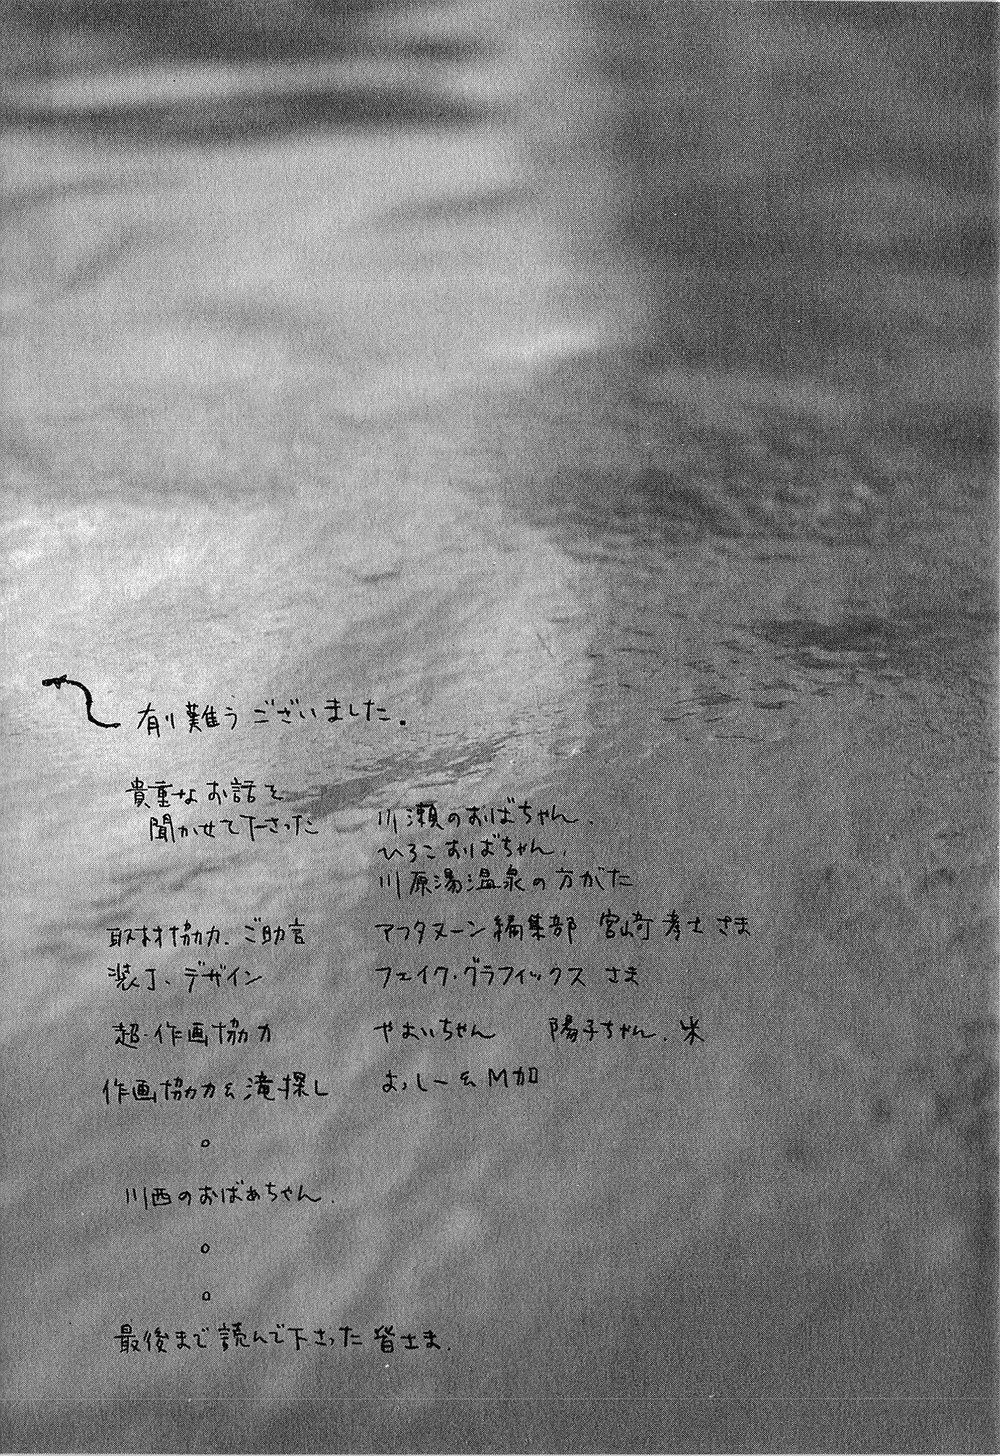 有り難うございました。
貴重なお話を
聞かせて下さった
川瀬のおばちゃん、
ひろこおばちゃん、
川原湯温泉の方がた
取材協力、ご助言 アフタヌーン編集部 宮崎孝士さま
装丁、デザイン フェイク・グラフィックス さま
超・作画協力 やよいちゃん 陽子ちゃん、米
作画協力&滝探し よっしー& M加
。
川西のおばあちゃん、
。
。
最後まで読んで下さった皆さま、